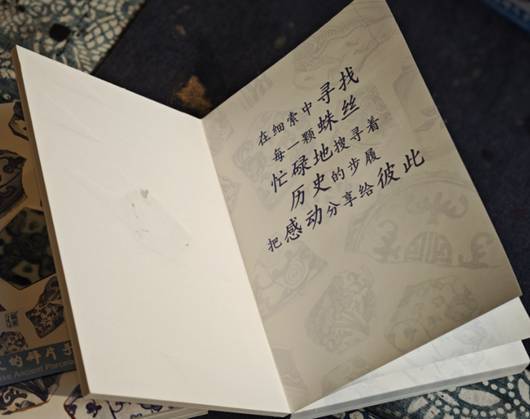 在细索中寻找
每一颗蛛丝
忙碌地搜寻着
历史的步履
把感动分享给彼此
的碎片
Ancient